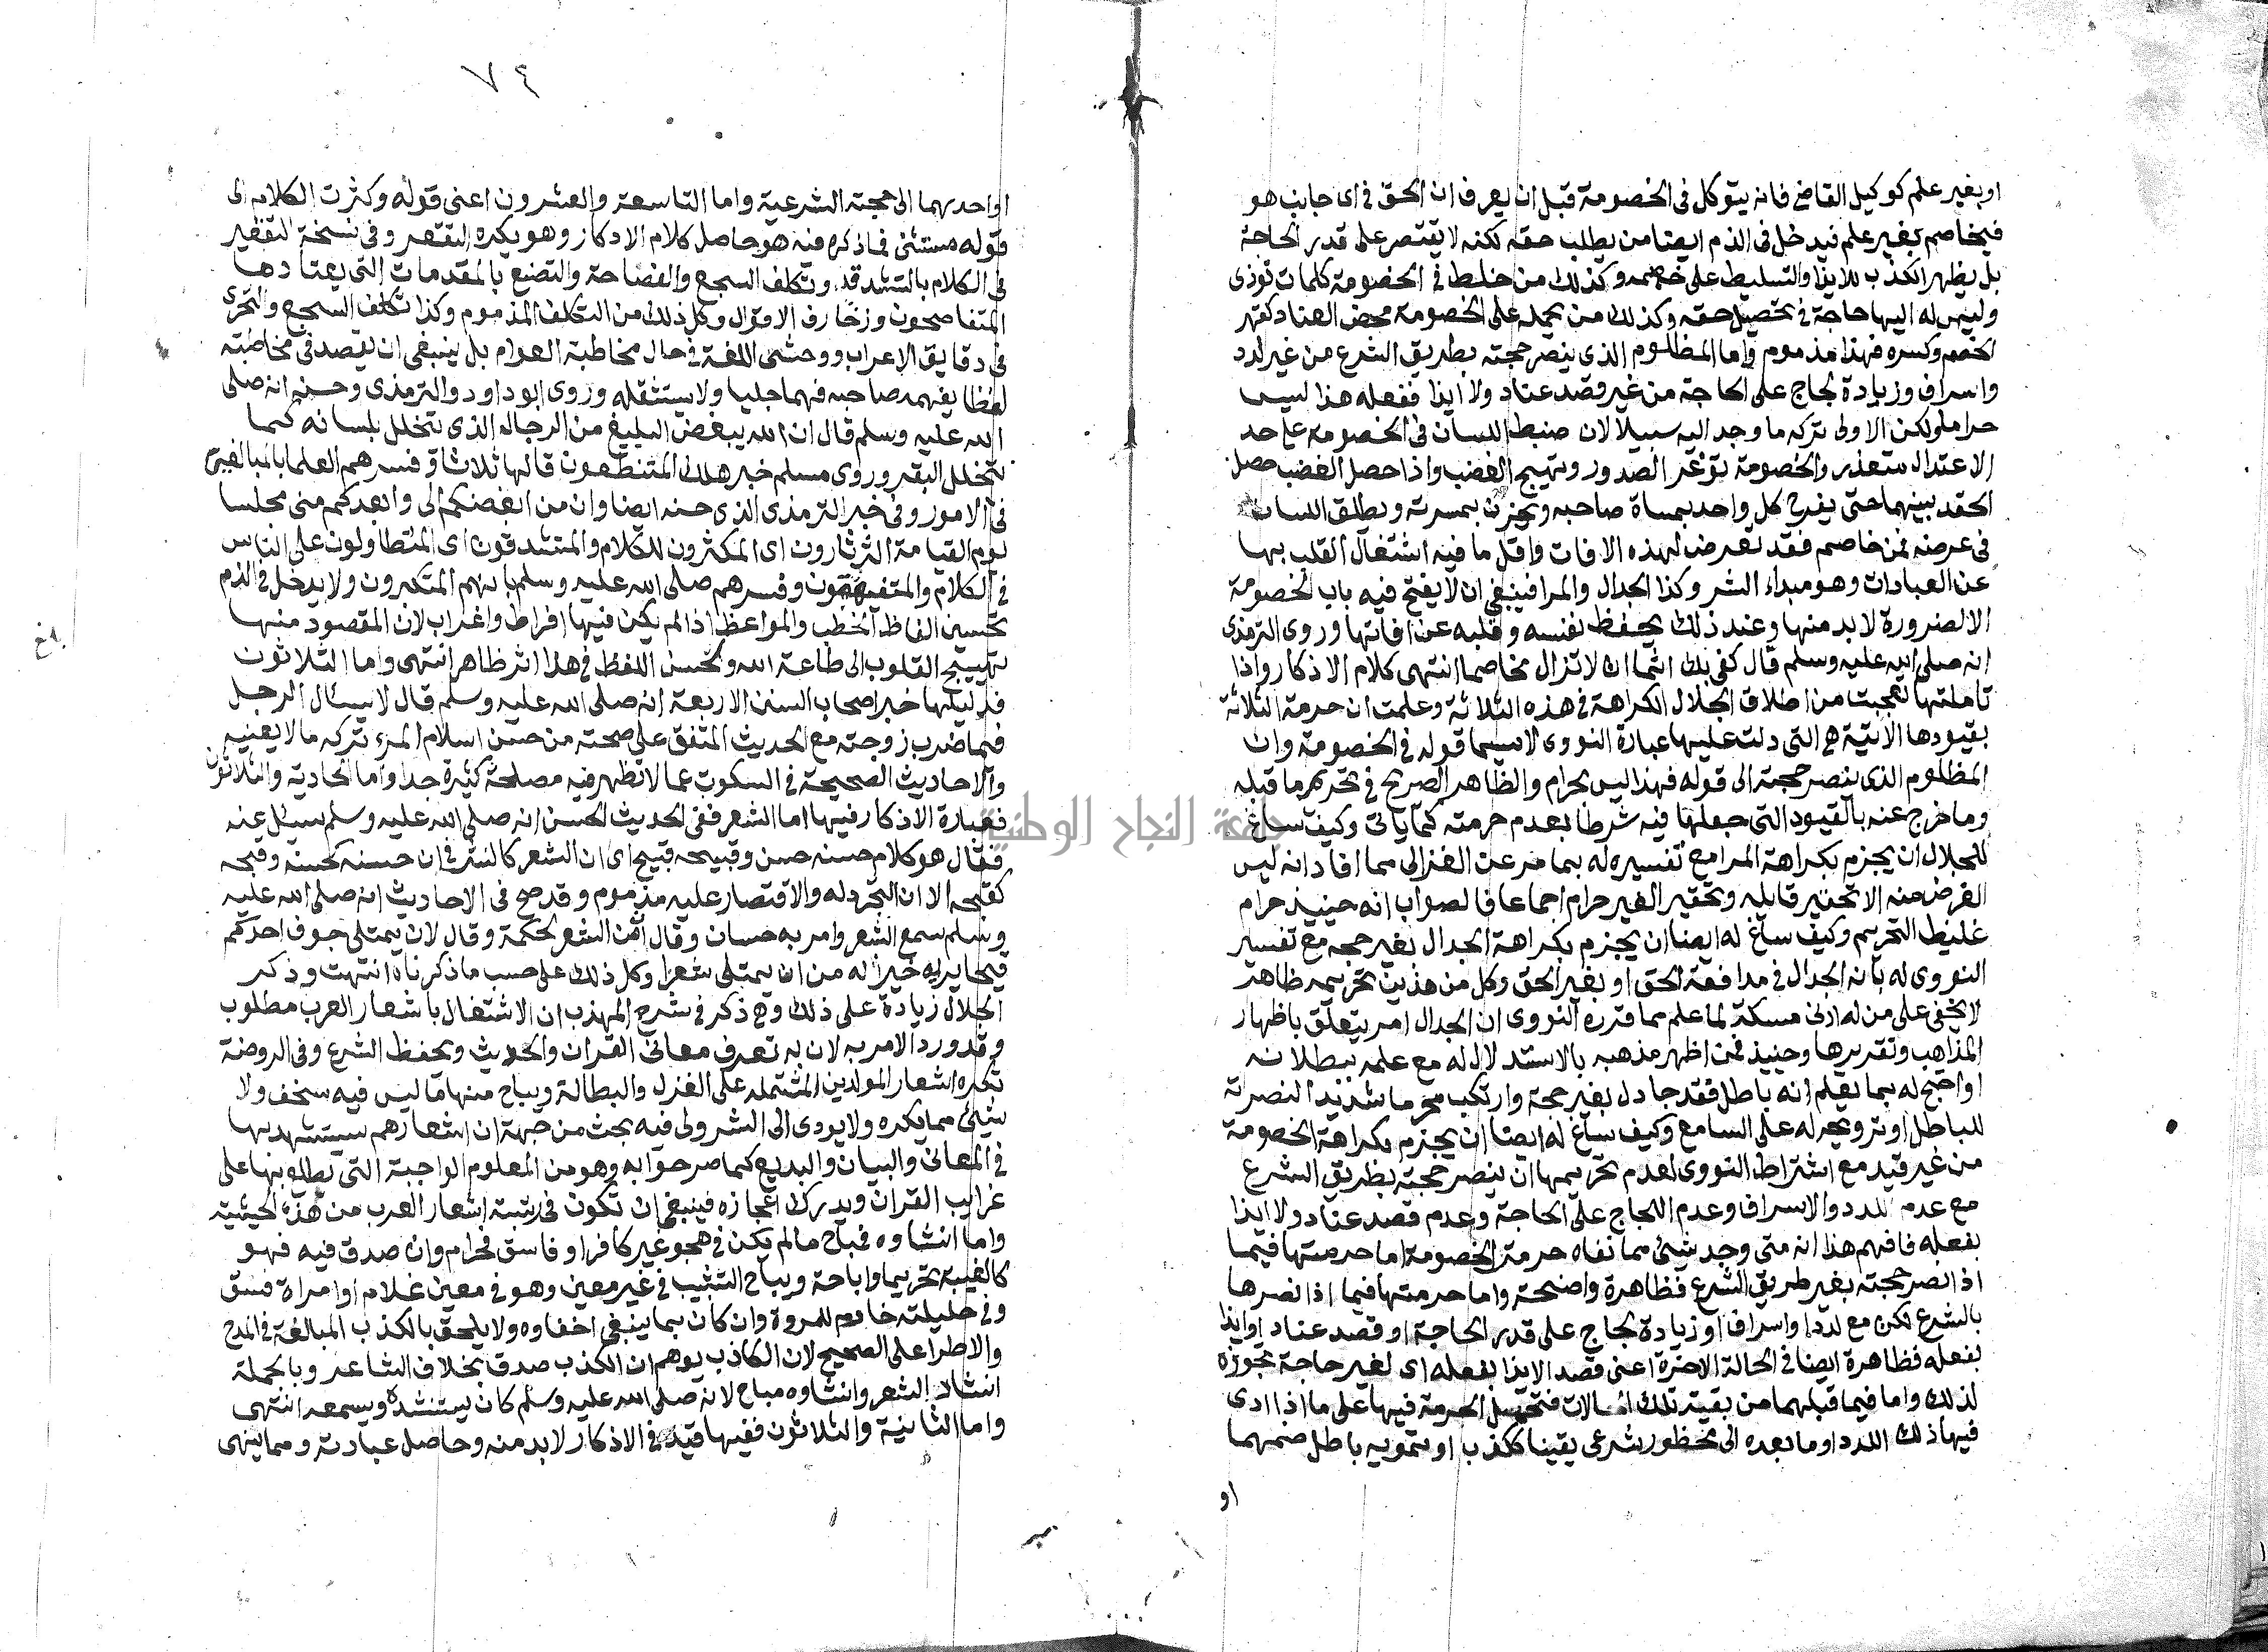 او بغير علم كوكيل القاضى فانه يتوكل فى الخصومة قبل ان يعرف ان الحق فى اى جانب هو
فيخاصم بغير علم فيدخل فى الذم ايضا من يطلب حقه لكنه لا يقتصر على قدر الحاجة
بل يظهر الكذب للايذا والتسليط على خصمه وكذلك من خلط فى الخصومة كلمات توذى
وليس له اليها حاجة فى تحصيل حقه وكذلك من يحمله على الخصومة محض العناد كقهر
الخصم وكسره فهذا مذموم واما المظلوم الذى ينصر حجته بطريق الشرع من غير لدد
واسراف وزيادة لجاج على الحاجة من غير قصد عناد ولا ايذا ففعله هذا ليس
حراما ولكن الاولى تركه ما وجد اليه سبيلا لان ضبط اللسان فى الخصومة على حد
الاعتدال متعذر والخصومة توغر الصدور وتهيج الغضب واذا حصل الغضب حصل
الحقد بينهما حتى يفرح كل واحد بمساة صاحبه ويحزن بمسرته ويطلق اللسان
فى عرضه فمن خاصم فقد تعرض لهذه الافات واقل ما فيه اشتغال القلب بها
عن العبادات وهو مبداء الشر وكذا الجدال والمرا فينبغى ان لا يفتح فيه باب الخصومة
الا لضرورة لا بد منها وعند ذلك يحفظ لفنسه وقلبه عن افاتها وروى الترمذى
انه صلى الله عليه وسلم قال كفى بك اثما ان لا تزال مخاصما انتهى كلام الاذكار واذا
تاملتها تعجبت من اطلاق الجلال الكراهة فى هذه الثلاثة وعلمت ان حرمة الثلاثة
بقيودها الاتية هى التى دلت عليها عبارة النووى لاسيما قوله فى الخصومة وان
المظلوم الذى ينصر حجته الى قوله فهذا ليس بحرام والظاهر الصريح فى تحريم ما قبله
وما خرج عنه بالقيود التى جعلها فيه شرطا بعدم حرمته كما ياتى وكيف ساغ
للجلال ان يجزم بكراهة المرا مع تفسيره له بما مر عن الغزالى مما افاد انه ليس
الغرض منه الا تحقير قايله وتحقير الغير حرام اجماعا فالصواب انه حينيذ حرام
غليظ التحريم وكيف ساغ له ايضا ان يجزم بكراهة الجدال بغير حجه مع تفسير
النووى له بانه الجدال فى مدافعة الحق او بغير الحق وكل من هذين تحريمه ظاهر
لا يخفى على من له ادنى مسكة لما علم مما قرره النووى ان الجدال امر يتعلق باظهار
المذاهب وتقريرها وحنيذ فمن اظهر مذهبه بالاستدلال له مع علمه ببطلانه
او احتج له بما يعلم انه باطل فقد جادل بغير حجة وارتكب محرما شديدا لنصرته
للباطل او ترويجه له على السامع وكيف ساغ له ايضا ان يجزم بكراهة الخصومة
من غير قيد مع اشتراط النووى لعدم تحريمها ان ينصر حجته بطريق الشرع
مع عدم اللدد والاسراف وعدم اللجاج على الحاجة وعدم قصد عناد ولا ايذا
بفعله فافهم هذا انه متى وجد شئ مما نفاه حرمة الخصومة اما حرمتها فيما
اذا نصر حجته بغير طريق الشرع فظاهرة واضحة واما حرمتها فيما اذا نصرها
بالشرع لكن مع لدد واسراف او زيادة لجاج على قدر الحاجة او قصد عناد او ايذا
بفعله فظاهرة ايضا فى الحالة الاخيرة اعنى قصد الايذا بفعله اى لغير حاجة تجوزه
لذلك واما فيما قبلهما من بقية تلك الحالات فتحمل الحرمة فيها على ما اذا ادى
فيها ذلك اللدد او ما بعده الى محظور شرعى يقينا ككذب او تمويه باطل ضمهما
او
٧٤
او احدهما الى حجته الشرعية واما التاسعة والعشرون اعنى قوله وكثرت الكلام الى
قوله مستثنى فما ذكره فيه هو حاصل كلام الاذكار وهو يكره التقعر وفى نسخة التقعير
فى الكلام بالتشدق وتكلف السجع والفصاحة والتصنع بالمقدمات التى يعتادها
المتفاصحون وزخارف الاقوال وكل ذلك من التكلف المذموم وكذا تكلف السجع والتحرى
فى دقايق الاعراب ووحشى اللغة فى حال مخاطبة العوام بل ينبغى ان يقصد فى مخاطبته
لفظا يفهمه صاحبه فهما جليا ولا يستثقله وروى ابو داود والترمذى وحسنه انه صلى
الله عليه وسلم قال ان الله يبغض البليغ من الرجال الذى يتخلل بلسانه كما
تتخلل البقر وروى مسلم خبر هلك المتنطعون قالها ثلاثا وفسرهم العلما بالمبالغين
فى الامور وفى خبر الترمذى الذى حسنه ايضا وان من ابغضكم الى وابعدكم منى مجلسا
يوم القيامة الثرثارون اى المكثرون للكلام والمتشدقون اى المتطاولون على الناس
فى الكلام والمتفيهقون وفسرهم صلى الله عليه وسلم بانهم المتكبرون ولا يدخل فى الذم
تحسين الفاظ الخطب والمواعظ اذا لم يكن فيها افراط واغراب لان المقصود منها
تهييج القلوب الى طاعة الله ولحسن اللفظ فى هذا اثر ظاهر انتهى واما الثلاثون
فدليلها خبر اصحاب السنن الاربعة انه صلى الله عليه وسلم قال لا يسال الرجل
فيما ضرب زوجته مع الحديث المتفق على صحته من حسن اسلام المرء تركه ما لا يعنيه
والاحاديث الصحيحة فى السكوت عما لا تظهر فيه مصلحة كثيرة جدا واما الحادية والثلاثون
فعبارة الاذكار فيها اما الشعر ففى الحديث الحسن انه صلى الله عليه وسلم سيل عنه
فقال هو كلام حسنه حسن وقبيحه قبيح اى ان الشعر كالنثر فى ان حسنه كحسنه وقبحه
كقبحه الا ان التجرد له والاقتصار عليه مذموم وقد صح فى الاحاديث انه صلى الله عليه
وسلم سمع الشعر وامر به حسان وقال ان من الشعر لحكمة وقال لان يمتلى جوف احدكم
قيحا يريه خيرا له من ان يمتلى شعرا وكل ذلك على حسب ما ذكرناه انتهت وذكر
الجلال زيادة على ذلك وهى ذكر فى شرح المهذب ان الاشتغال باشعار العرب مطلوب
وقد ورد الامر به لان به تعرف معانى القران والحديث ويحفظ الشرع وفى الروضة
تكره اشعار المولدين المشتمله على الغزل والبطالة ويباح منها ما ليس فيه سخف ولا
شئ مما يكره ولا يودى الى الشر ولى فيه بحث من جهة ان اشعارهم يستشهد بها
فى المعانى والبيان والبديع كما صرحوا به وهو من العلوم الواجبة التى يطلع بها على
غرايب القران ويدرك اعجازه فينبغى ان تكون فى رتبة اشعار العرب من هذه الحيثية
واما انشاوه فمباح ما لم يكن فى هجو غير كافر او فاسق فحرام وان صدق فيه فهو
كالغيبة تحريما واباحة ويباح التشبيب فى غير معين وهو فى معين غلام او امراة فسق
وفى حليلته خارم للمروة وان كان بما ينبغى اخفاوه ولا يلحق بالكذب المبالغة فى المدح
والاطرا على الصحيح لان الكاذب يوهم ان الكذب صدق بخلاف الشاعر وبالجملة
انشاد الشعر وانشاوه مباح لانه صلى الله عليه وسلم كان يستنشده ويسمعه انتهى
واما الثانية والثلاثون ففيها قيد فى الاذكار لا بد منه وحاصل عبارته ومما ينهى
جامعة النجاح الوطنية